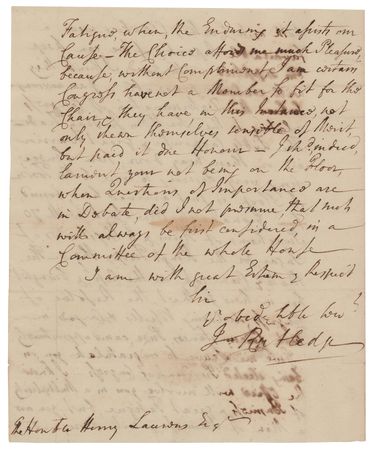 Fatigue, when, the Enduring it assists our
Cause – The Choice affords me much Pleasure,
because, without Compliment, I am certain
Congress have not a Member so fit for the
Chair – they have in this Instance, not
only shewn themselves sensible of Merit,
but paid it due Honour – I shd indeed,
lament your not being on the Floor,
when Questions of Importance are
in Debate, did I not presume, that such
will always be first considered in a
Committee of the whole House
I am with great Esteem & Respect
Sir
yr obedt hble servt
J Rutledge
The Honble Henry Laurens Esq